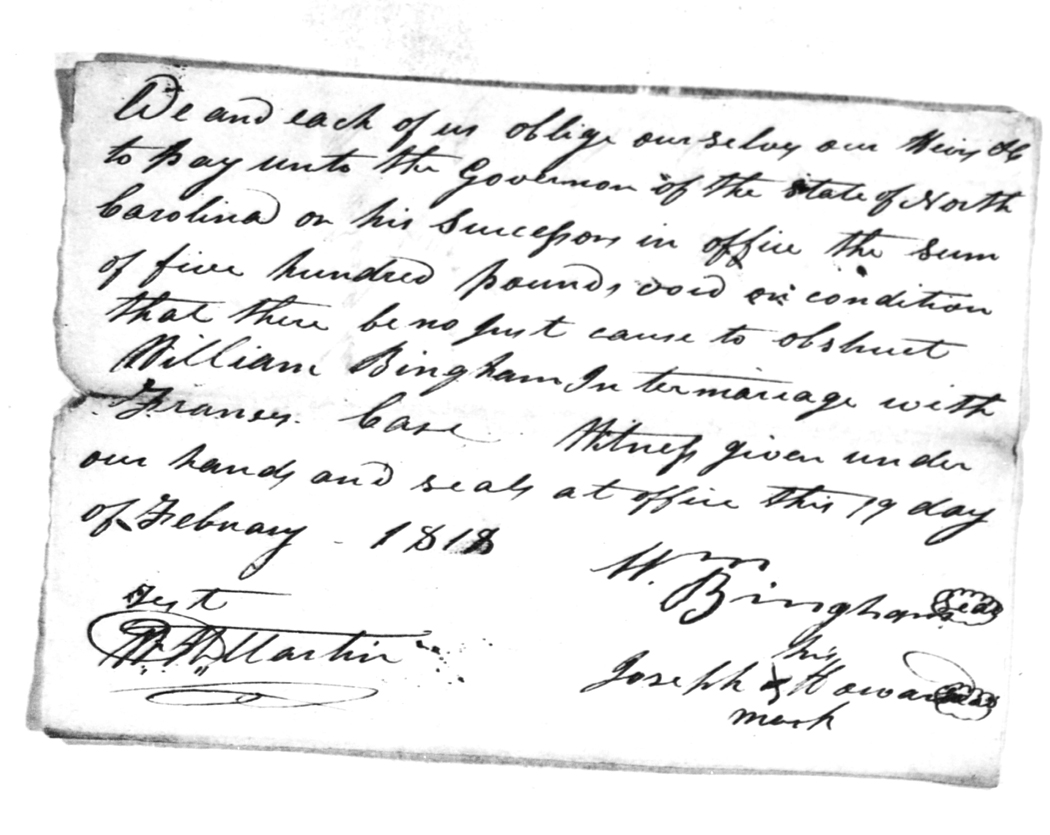 We and each of us oblige ourselvs our Heirs &c
to pay unto the Governor of the state of North
Carolina or his Successors in office the sum
of five hundred pounds void on condition
that there be no Just cause to obstruct
William Bingham Intermariage with
Frances Case Witness given under
our hands and seals at office this 19 day
of February - 1818
Wm Bingham seal
his
Joseph x Howard seal
mark
Test
Martin